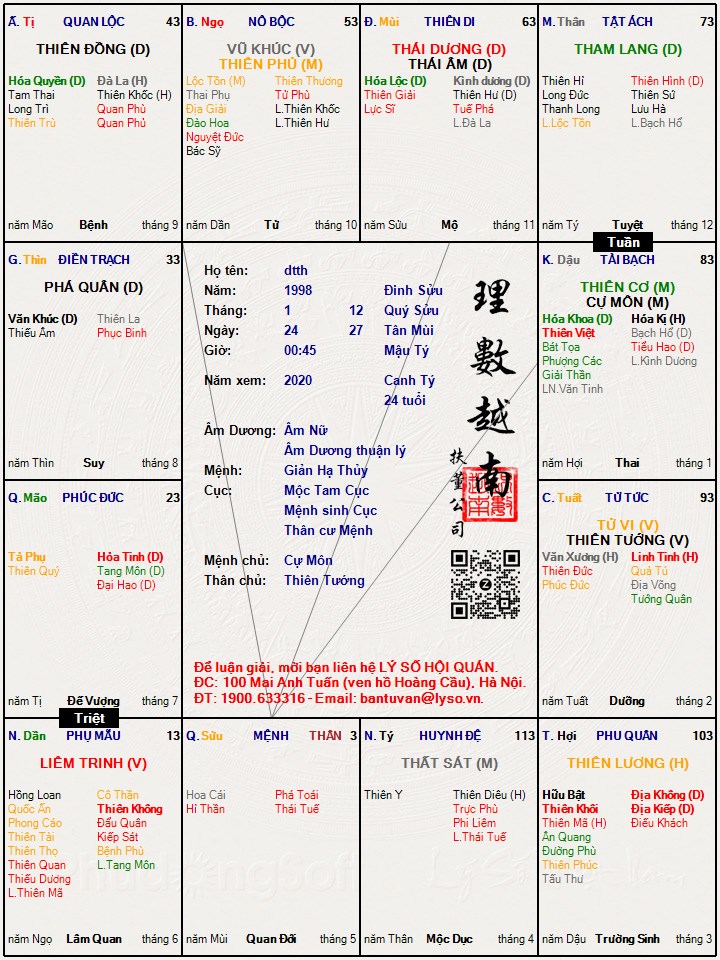 Ấ. Tị QUAN LỘC 43
THIÊN ĐỒNG (D)
Hóa Quyền (D) Đà La (H)
Tam Thai Thiên Khốc (H)
Long Trì Quan Phù
Thiên Trù Quan Phủ
năm Mão Bệnh tháng 9
B. Ngọ NÔ BỘC 53
VŨ KHÚC (V)
THIÊN PHỦ (M)
Lộc Tồn (M) Thiên Thương
Thai Phụ Tử Phù
Địa Giải L.Thiên Khốc
Đào Hoa L.Thiên Hư
Nguyệt Đức
Bác Sỹ
năm Dần Tử tháng 10
Đ. Mùi THIÊN DI 63
THÁI DƯƠNG (D)
THÁI ÂM (D)
Hóa Lộc (D) Kình dương (D)
Thiên Giải Thiên Hư (D)
Lực Sĩ Tuế Phá
L.Đà La
năm Sửu Mộ tháng 11
M. Thân TẬT ÁCH 73
THAM LANG (D)
Thiên Hỉ Thiên Hình (D)
Long Đức Thiên Sứ
Thanh Long Lưu Hà
L.Lộc Tồn L.Bạch Hổ
năm Tý Tuyệt tháng 12
Tuần
G. Thìn ĐIỀN TRẠCH 33
PHÁ QUÂN (D)
Văn Khúc (D) Thiên La
Thiếu Âm Phục Binh
năm Thìn Suy tháng 8
Họ tên: dtth
Năm: 1998 Đinh Sửu
Tháng: 1 12 Quý Sửu
Ngày: 24 27 Tân Mùi
Giờ: 00:45 Mậu Tý
Năm xem: 2020 Canh Tý
24 tuổi
Âm Dương: Âm Nữ
Âm Dương thuận lý
Mệnh: Giản Hạ Thủy
Cục: Mộc Tam Cục
Mệnh sinh Cục
Thân cư Mệnh
Mệnh chủ: Cự Môn
Thân chủ: Thiên Tướng
理數越南
扶董公司
Z
Để luận giải, mời bạn liên hệ LÝ SỐ HỘI QUÁN.
ĐC: 100 Mai Anh Tuấn (ven hồ Hoàng Cầu), Hà Nội.
ĐT: 1900.633316 - Email: bantuvan@lyso.vn.
K. Dậu TÀI BẠCH 83
THIÊN CƠ (M)
CỰ MÔN (M)
Hóa Khoa (D) Hóa Kị (H)
Thiên Việt Bạch Hổ (D)
Bát Tọa Tiểu Hao (D)
Phượng Các L.Kình Dương
Giải Thần
LN.Văn Tinh
năm Hợi Thai tháng 1
Q. Mão PHÚC ĐỨC 23
Tả Phụ Hỏa Tinh (D)
Thiên Quý Tang Môn (D)
Đại Hao (D)
năm Tị Đế Vượng tháng 7
Triệt
C. Tuất TỬ TỨC 93
TỬ VI (V)
THIÊN TƯỚNG (V)
Văn Xương (H) Linh Tinh (H)
Thiên Đức Quả Tú
Phúc Đức Địa Võng
Tướng Quân
năm Tuất Dưỡng tháng 2
N. Dần PHỤ MẪU 13
LIÊM TRINH (V)
Hồng Loan Cô Thần
Quốc Ấn Thiên Không
Phong Cáo Đẩu Quân
Thiên Tài Kiếp Sát
Thiên Thọ Bệnh Phù
Thiên Quan L.Tang Môn
Thiếu Dương
L.Thiên Mã
năm Ngọ Lâm Quan tháng 6
Q. Sửu MỆNH THÂN 3
Hoa Cái Phá Toái
Hỉ Thần Thái Tuế
năm Mùi Quan Đới tháng 5
N. Tý HUYNH ĐỆ 113
THẤT SÁT (M)
Thiên Y Thiên Diêu (H)
Trực Phù
Phi Liêm
L.Thái Tuế
năm Thân Mộc Dục tháng 4
T. Hợi PHU QUÂN 103
THIÊN LƯƠNG (H)
Hữu Bật Địa Không (D)
Thiên Khôi Địa Kiếp (D)
Thiên Mã (H) Điếu Khách
Ân Quang
Đường Phù
Thiên Phúc
Tấu Thư
năm Dậu Trường Sinh tháng 3